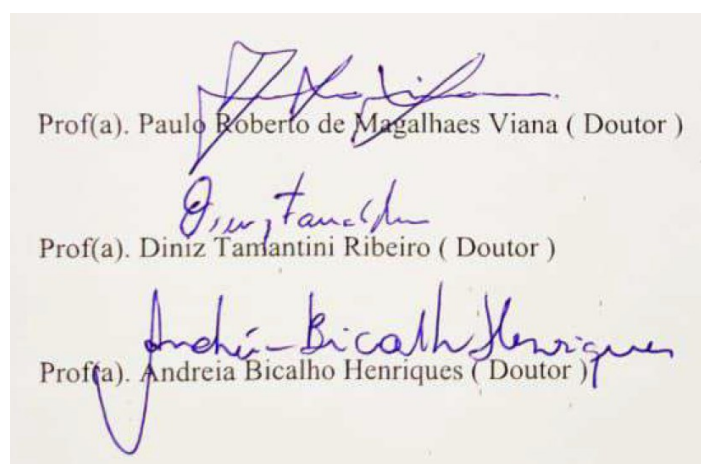 Prof(a). Paulo Roberto de Magalhaes Viana ( Doutor )
Prof(a). Diniz Tamantini Ribeiro ( Doutor )
Andréia Bicalho Henriques
Prof(a). Andreia Bicalho Henriques ( Doutor )